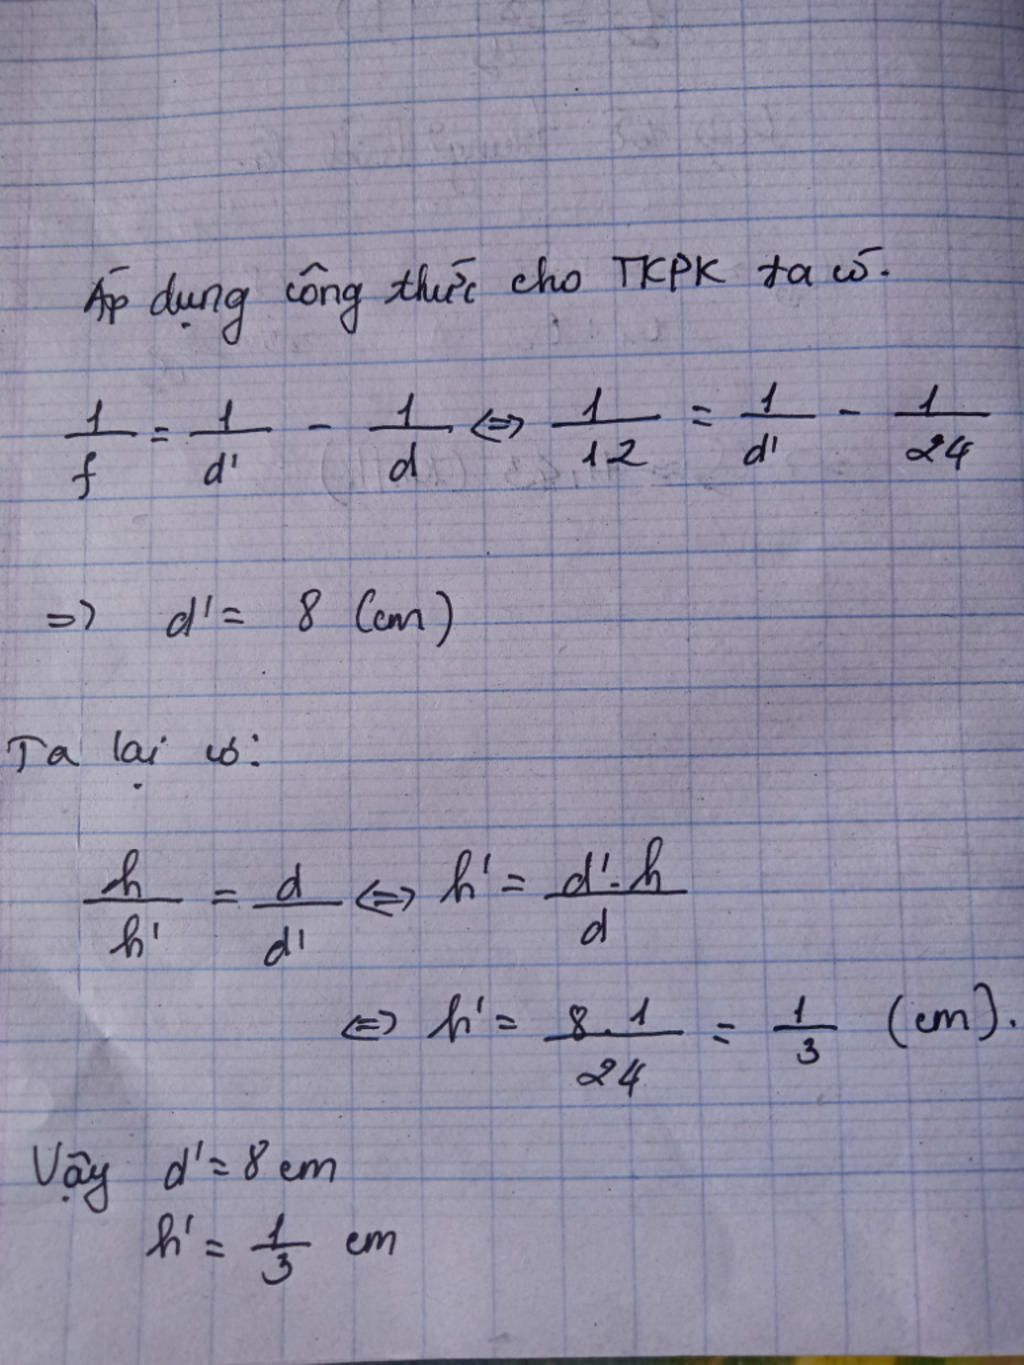 Áp dụng công thức cho TKPK ta có.
1/f = 1/d' - 1/d ⇔ 1/12 = 1/d' - 1/24
=> d' = 8 (cm)
Ta lại có:
h/h' = d/d' ⇔ h' = d'.h/d
⇔ h' = 8.1/24 = 1/3 (cm).
Vậy d' = 8 cm
h' = 1/3 cm